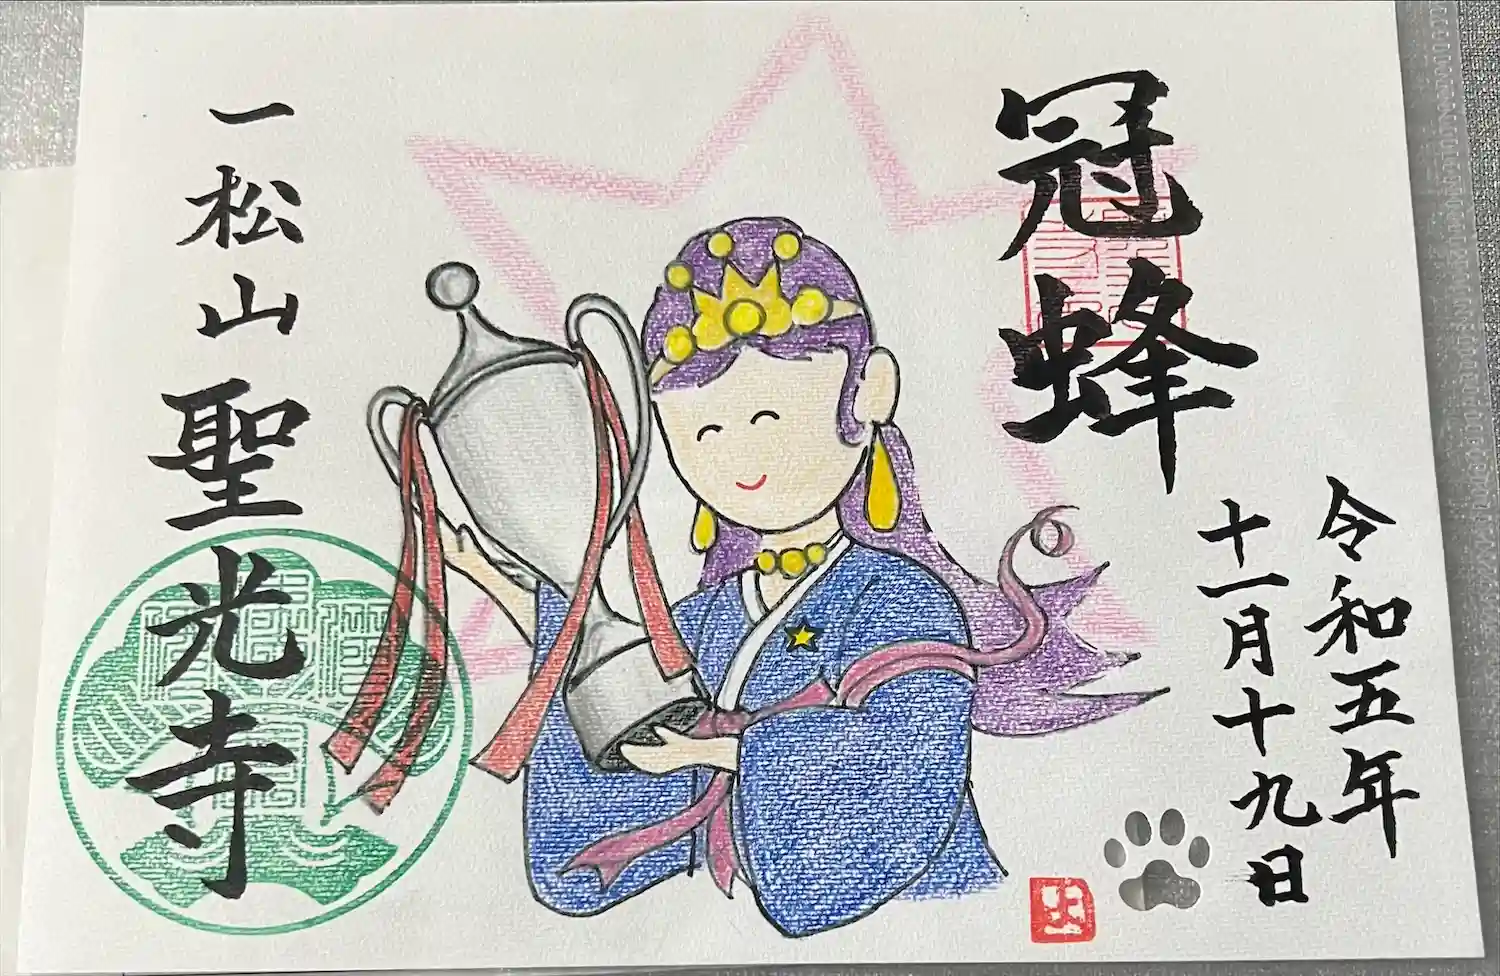 冠蜂
令和五年
十一月十九日
一松山聖光寺